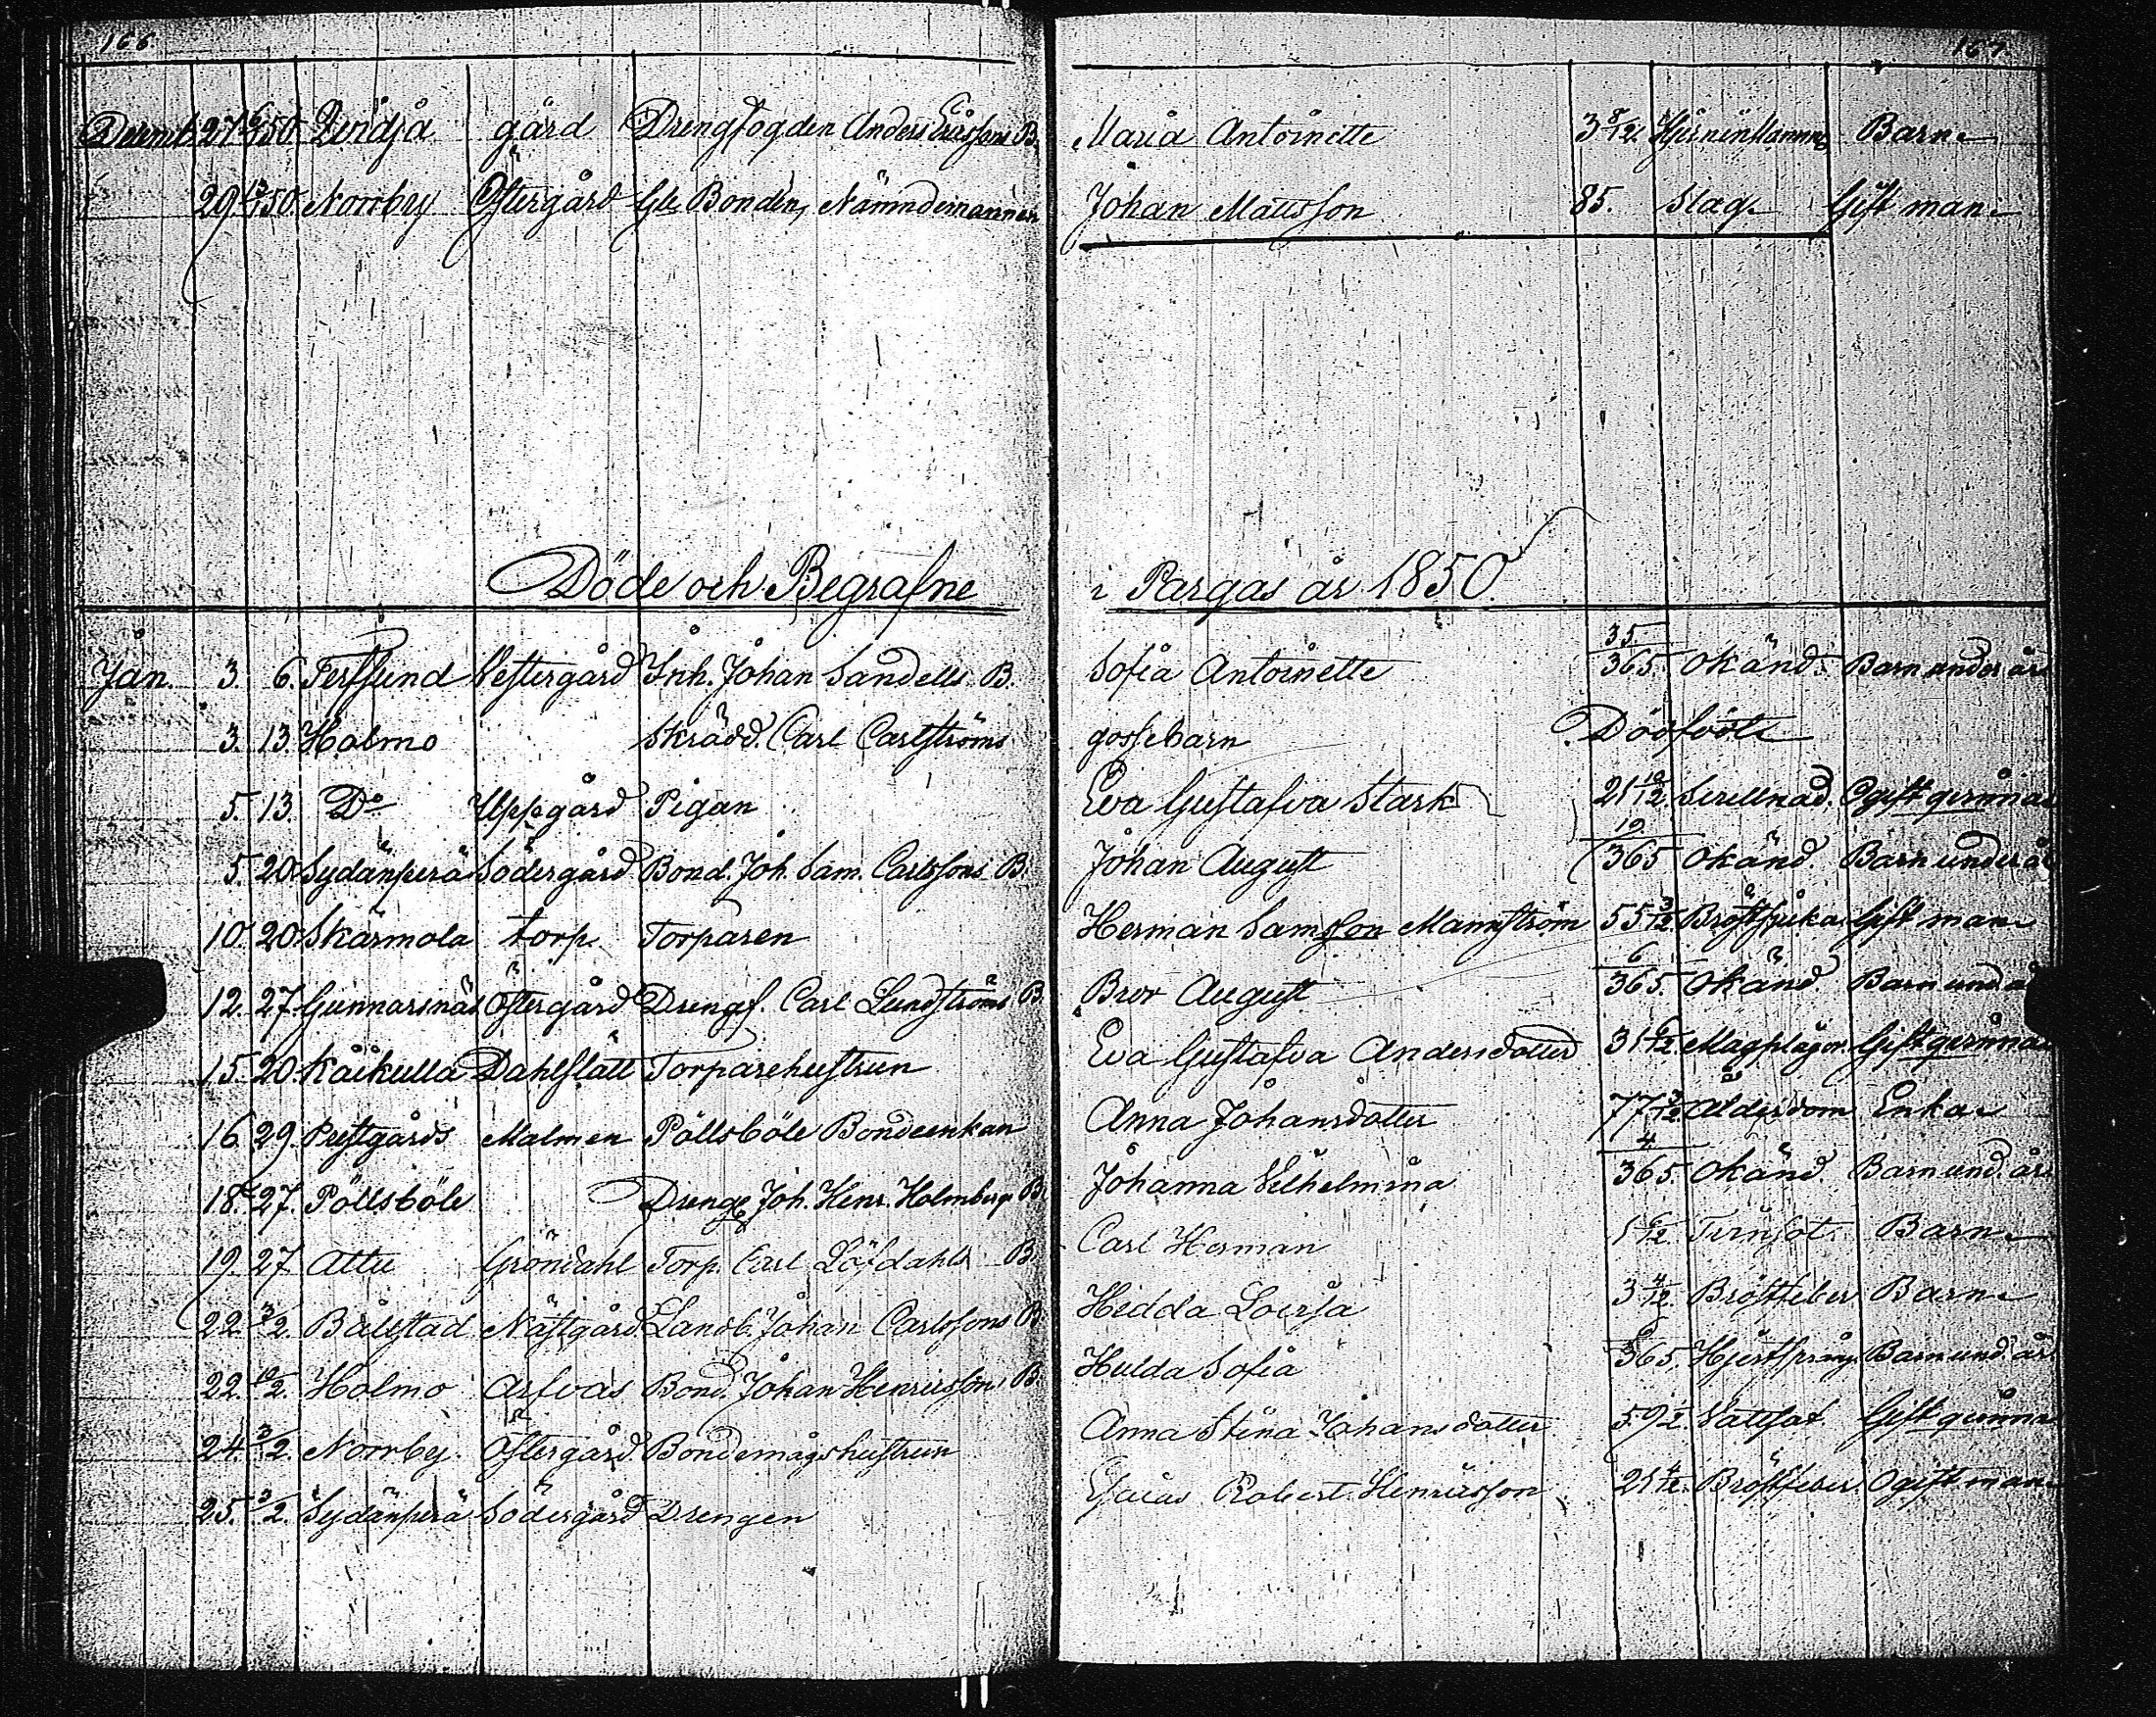 166. 167.
Decemb. 27 6/1 50. Qvidja gård Drengfogden Anders Ericssons B. Maria Antoinette 3 8/12 Barn
29 13/1 50. Norrby Östergård Gle Bonden, Nämndemannen Johan Mattsson 85. Slag Gift man
Döde och Begrafne i Pargas år 1850.
Jan. 3. 6. Terfsund Vestergård Inh. Johan Sandells B. Sofia Antoinette 35/365. Okänd. Barn under år
3. 13. Holmo Skrädd. Carl Carlströms gossebarn Dödfödt
5. 13. Do Uppgård Pigan Eva Gustafva Stark 21 10/12. Ogift qvinna
5. 20. Sydänperä Södergård Bond. Joh. Sam. Carlssons B. Johan August 10/365 Okänd. Barn under år
10. 20. Skärmola torp. Torparen Herman Samsson Mannström 55 3/12. Bröstsjuka Gift man
12. 27. Gunnarsnäs Östergård Drengf. Carl Lundströms B. Bror August 6/365. Okänd Barn und. år
15. 20. Kaikulla Dahlslätt Torparehustrun Eva Gustafva Andersdotter 31 6/12. Magplågor. Gift qvinna
16. 29. Prestgårds Malmen Pöllsböle Bondeenkan Anna Johansdotter 77 3/12 Ålderdom Enka
18. 27. Pöllsböle Dreng. Joh. Henr. Holmbergs B. Johanna Vilhelmina 4/365. Okänd. Barn und. år
19. 27. Attu Gröndahl Torp. Carl Löfdahls B. Carl Herman 1 6/12. Tvinsot Barn
22. 3/2. Bålstad Nästgård Landb. Johan Carlssons B. Hedda Lovisa 3 4/12. Bröstfeber Barn
22. 10/2. Holmo Arfvas Bond. Johan Henricssons B. Hulda Sofia 365. Hjertsprång. Barn und. år
24. 3/2. Norrby. Östergård Bondemågshustrun Anna Stina Johansdotter 59 1/2. Vattsot. Gift qvinna
25. 3/2. Sydänperä Södergård Drengen Esaias Robert Henricsson 21 4/12. Bröstfeber. Ogift man